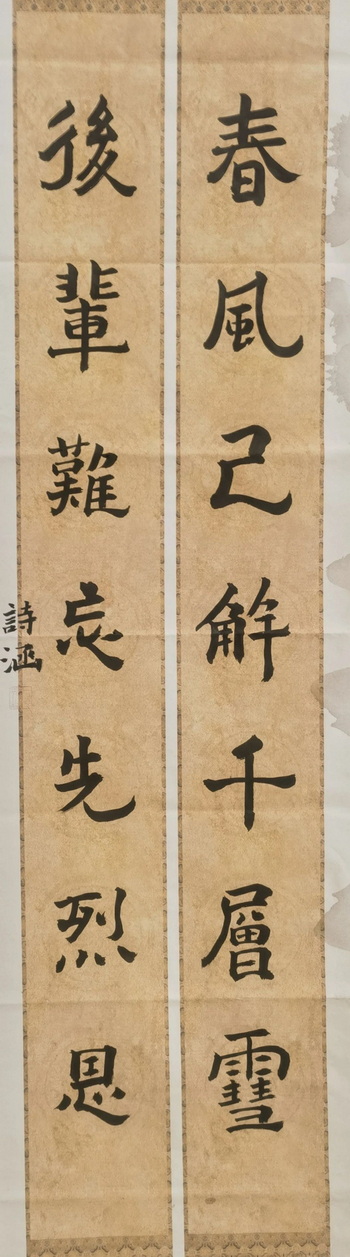 春風已解千層雪
後輩難忘先烈恩
詩涵